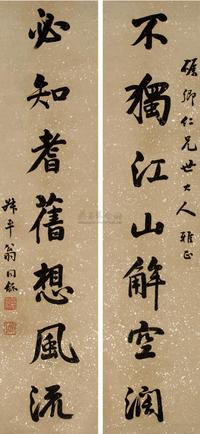 不獨江山解空濶
礪卿仁兄世大人雅正
必知耆舊想風流
叔平翁同龢